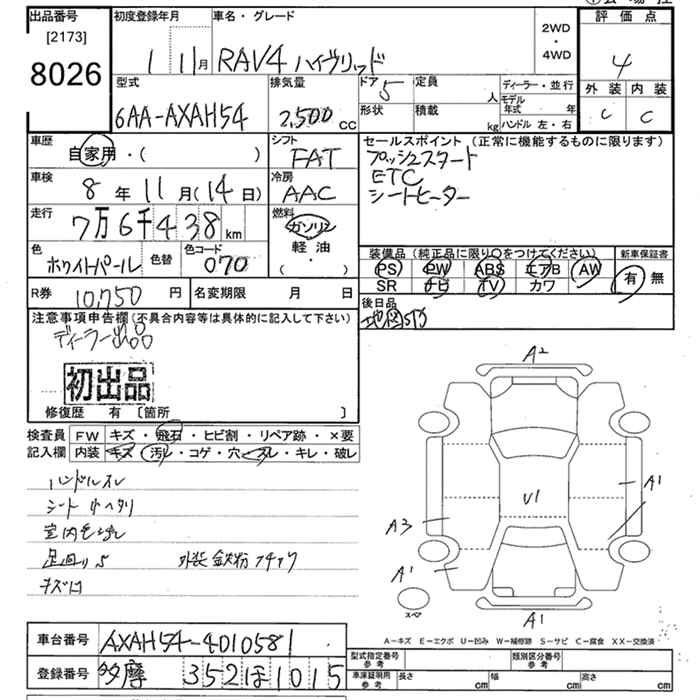 出品番号
[2173]
8026
初度登録年月
1 11月
車名・グレード
RAV4 ハイブリッド
2WD
・
4WD
評価点
4
外装 内装
C C
型式
6AA-AXAH54
排気量
2,500 CC
ドア 5
形状
定員 人
積載 kg
ディーラー・並行
モデル年式 年
ハンドル 左・右
車歴
自家用・( )
シフト
FAT
車検
8年11月(14日)
冷房
AAC
走行
7万6千438km
燃料
ガソリン
軽油
( ・ )
色
ホワイトパール
色替
色コード
070
R券 10,750円
名変期限 月 日
セールスポイント (正常に機能するものに限ります)
プッシュスタート
ETC
シートヒーター
装備品 (純正品に限り○をつけてください)
PS PW ABS エアB AW
SR ナビ TV カワ
新車保証書
有 無
後日品
注意事項申告欄 (不具合内容等は具体的に記入して下さい)
ディーラー出品
初出品
修復歴 有 [箇所 ]
検査員 FW キズ・飛石・ヒビ割・リペア跡・×要
記入欄 内装 キズ・汚レ・コゲ・穴・スレ・キレ・破レ
ハンドルスレ
シート
足回りS 外装鉄粉
キズ口
A2
U1
A1
A3
A1
A1
スペア
A―キズ E―エクボ U―凹み W―補修跡 S―サビ C―腐食 XX―交換済
車台番号 AXAH54-4010581
登録番号 多摩 352ほ1015
型式指定番号 参考
類別区分番号 参考
車庫証明用 参考 長さ cm 幅 cm 高さ cm